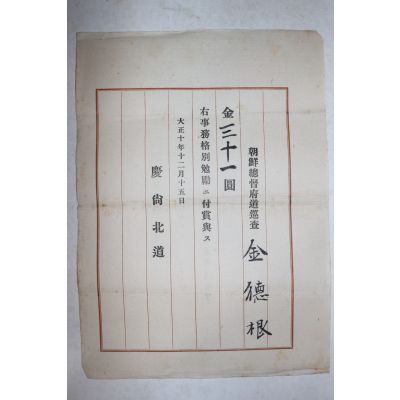 朝鮮總督府道巡査
金德根
金三十一圓
右事務格別勉勵ニ付賞與ス
大正十年十二月十五日
慶尙北道